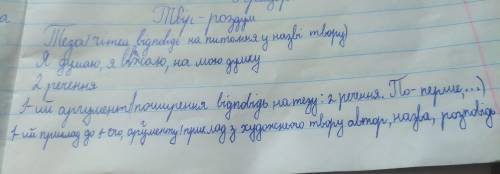 Твір - роздум
Теза (чітка відповідь на питання у назві твору)
Я думаю, я вважаю, на мою думку
2 речення
1-ий аргумент (поширення відповідь на тезу: 2 речення. По-перше,...)
1-ий приклад до 1-ого аргументу (приклад з художнього твору автор, назва, розповідь